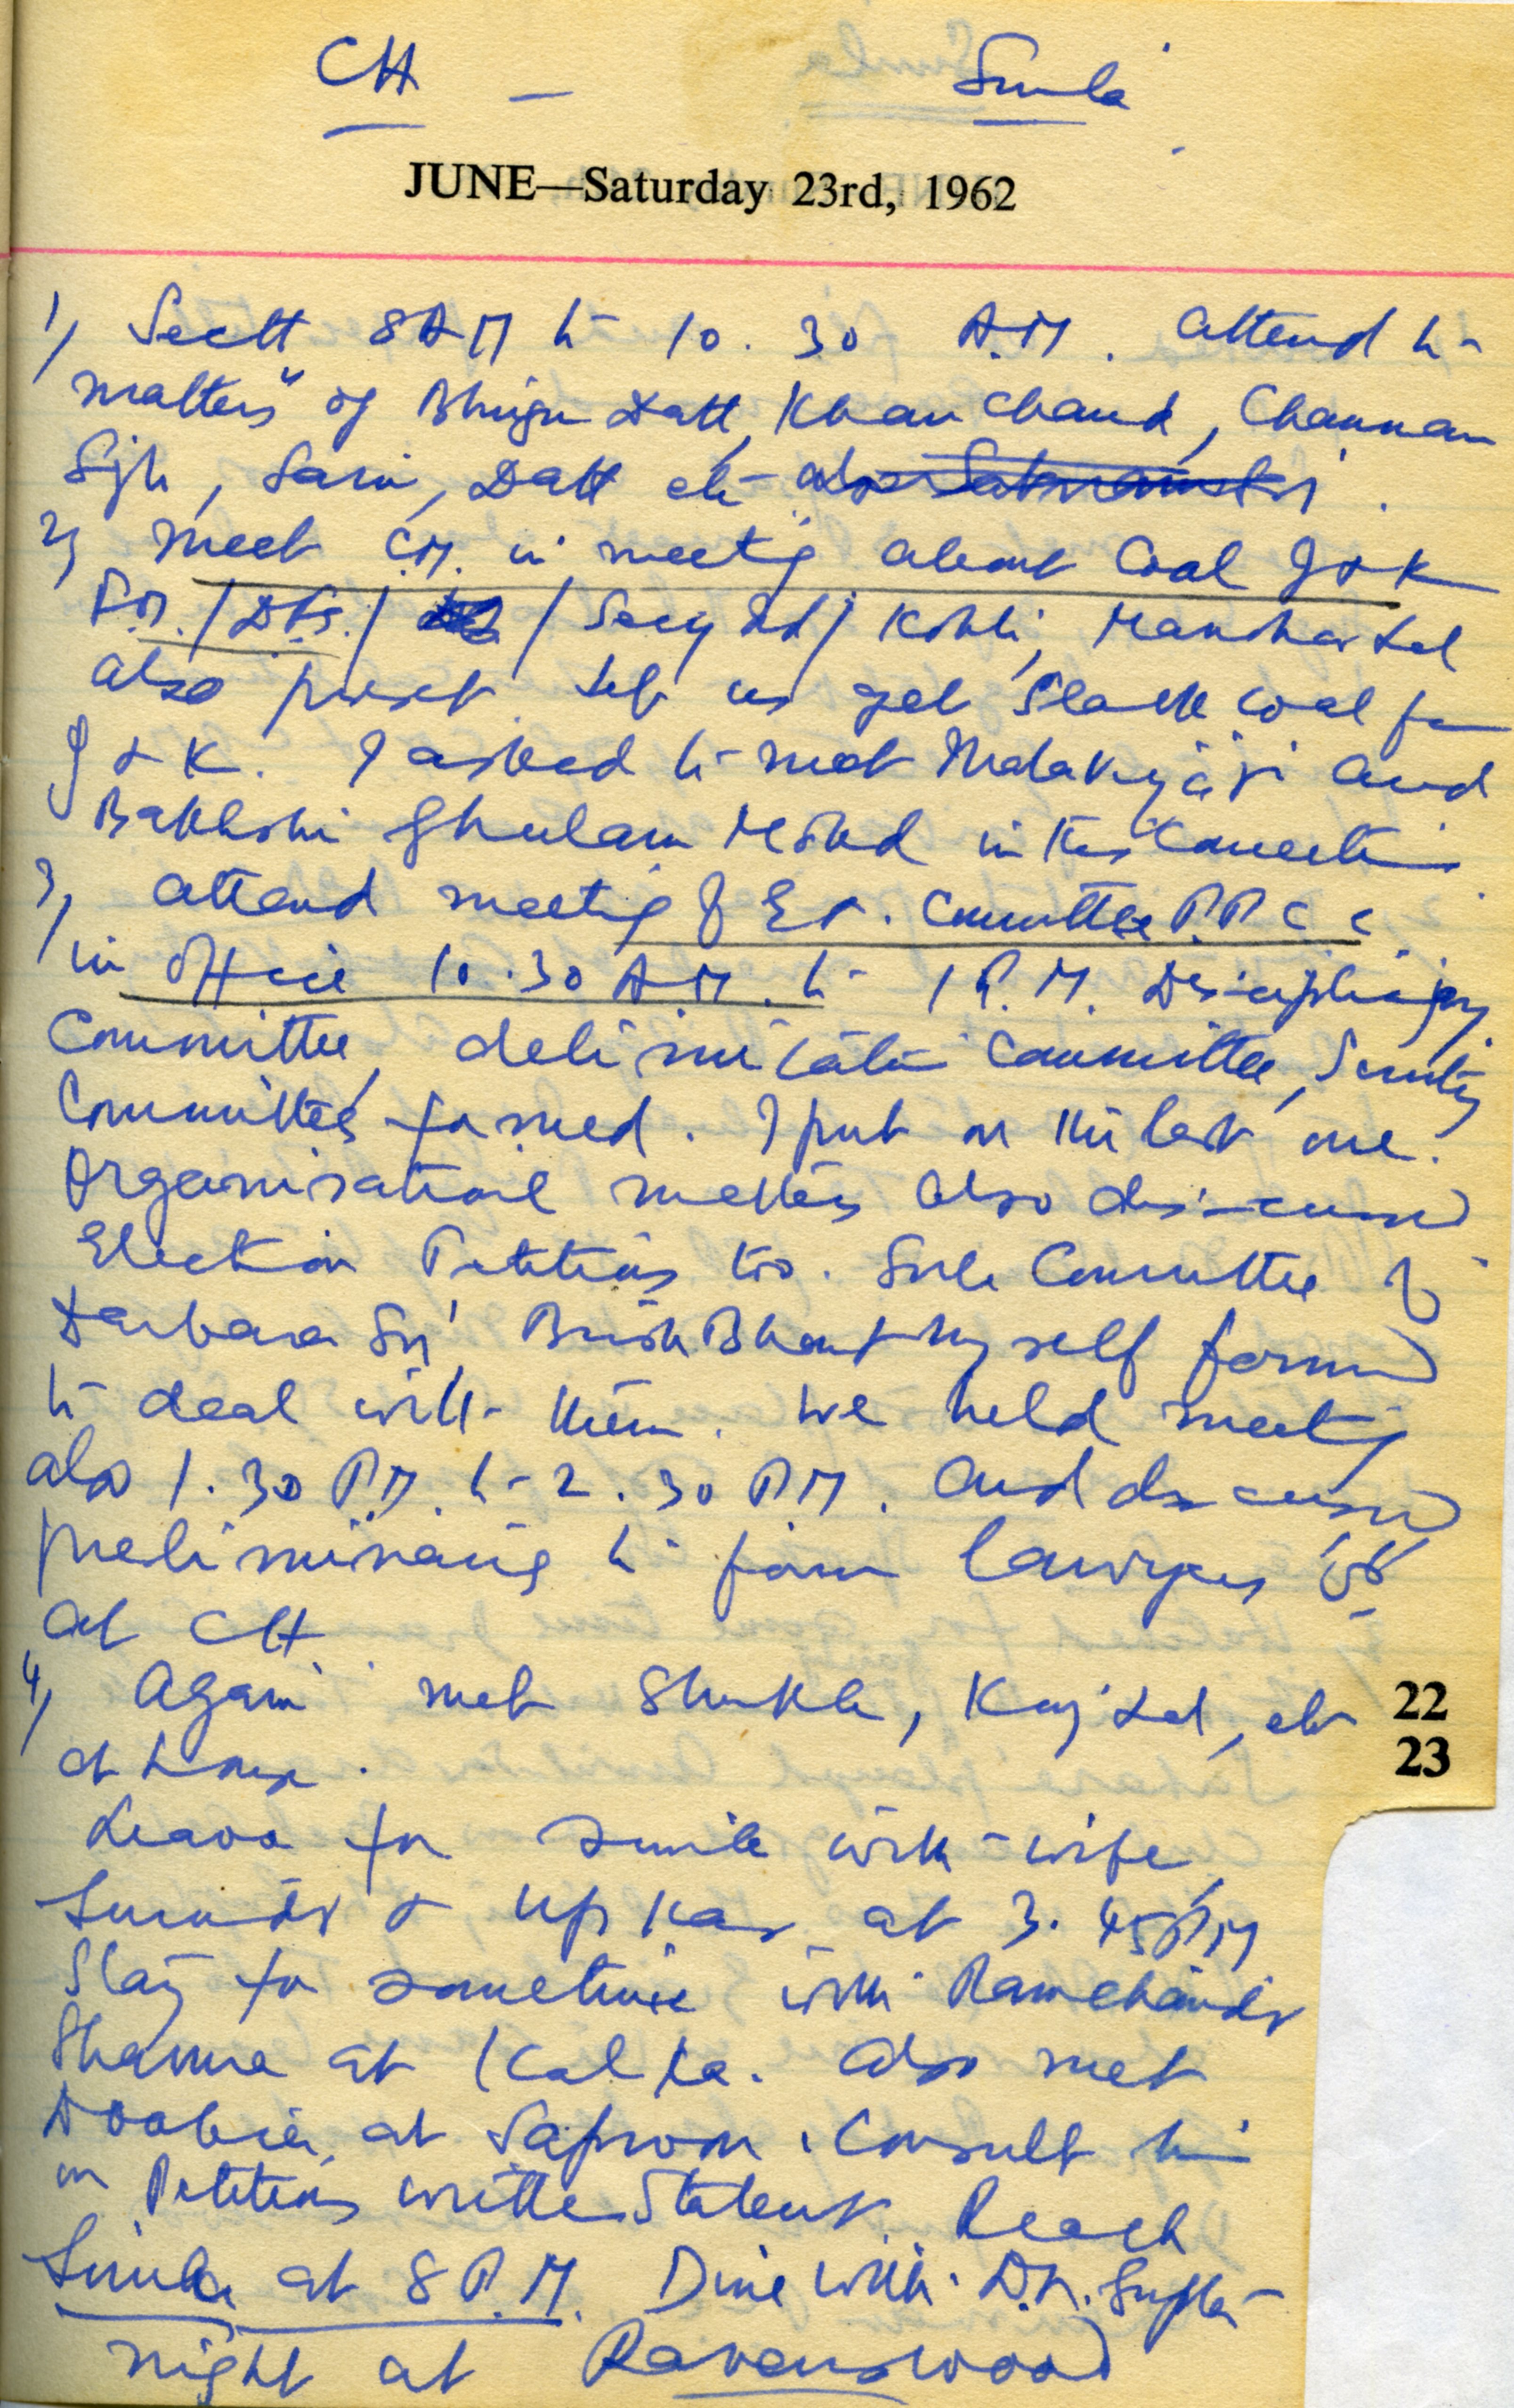 CH — Simla
JUNE—Saturday 23rd, 1962
1) Sectt 8 AM to 10.30 A.M. attend to
matters of Bhrigu Datt, Khan Chand, Channan
Sgh, Sarin, Datt etc also
2) Meet C.M. in meeting about Coal J & K
F.M. / D.F.S. / / Secy / Kohli, Manohar Lal
also present. Let us get Slack Coal for
J & K. I asked to meet Malaviyaji and
Bakhshi Ghulam Mohd in this connection
3) attend meeting of Ex. Committee P.P.C.C.
in office 10.30 A.M. to 1 P.M. Disciplinary
Committee, delimitation Committee, Scrutiny
Committees formed. I put on the last one.
Organisational matters also discussed
Election Petitions too. Sub Committee of
Darbara Sn' Brish Bhan & myself formed
to deal with them. We held meeting
also 1.30 P.M. to 2.30 P.M. and discussed
preliminaries to form lawyers
at CH
4) Again met Shukla, Lal, etc
at house.
Leave for Simla with wife,
& Upkar at 3.45 PM
Stay for sometime with Ramchandr
Sharma at Kalka. Also met
Doabia at Saproon. Consult him
on Petitions written Statement. Reach
Simla at 8 P.M. Dine with D.N. Gupta
night at Ravenswood
22
23